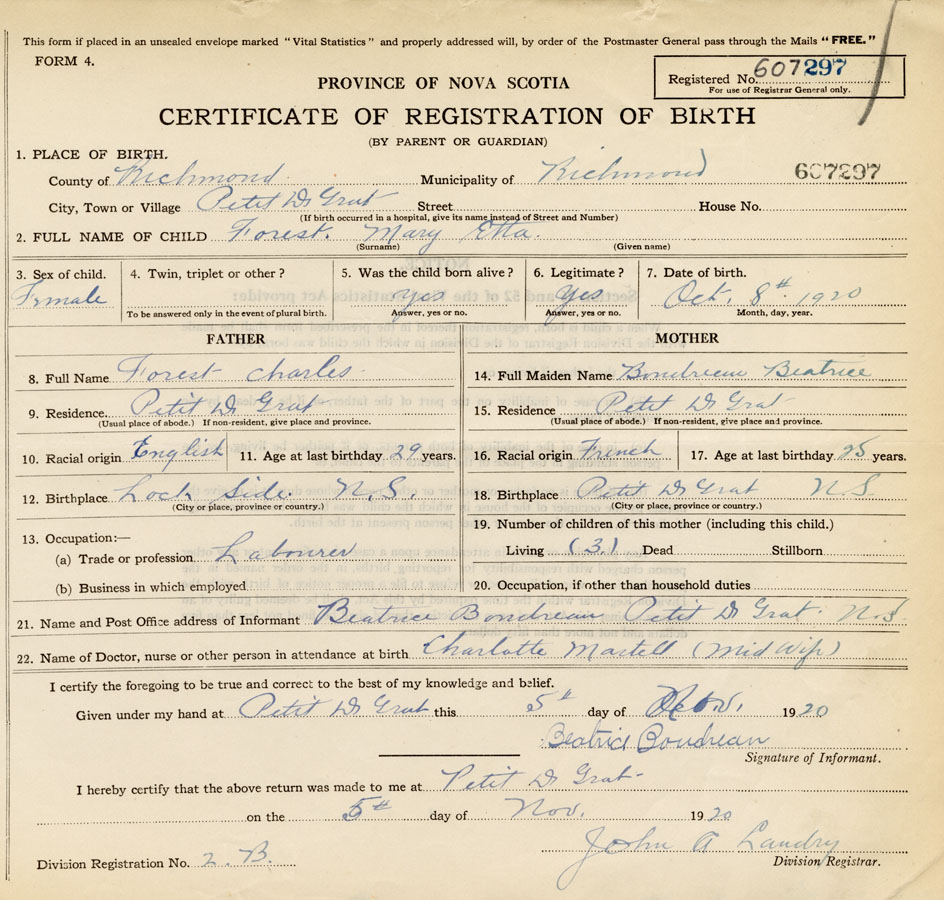 This form if placed in an unsealed envelope marked "Vital Statistics" and properly addressed will, by order of the Postmaster General pass through the Mails "FREE."
FORM 4.
Registered No. 607297
For use of Registrar General only.
PROVINCE OF NOVA SCOTIA
CERTIFICATE OF REGISTRATION OF BIRTH
(BY PARENT OR GUARDIAN)
1. PLACE OF BIRTH.
607297
County of Richmond Municipality of Richmond
City, Town or Village Petit D Grat Street House No.
(If birth occurred in a hospital, give its name instead of Street and Number)
2. FULL NAME OF CHILD Forest. Mary Etta.
(Surname) (Given name)
3. Sex of child. 4. Twin, triplet or other? 5. Was the child born alive? 6. Legitimate? 7. Date of birth.
Female yes Yes Oct. 8th 1920
To be answered only in the event of plural birth. Answer, yes or no. Answer, yes or no. Month, day, year.
FATHER MOTHER
8. Full Name Forest Charles 14. Full Maiden Name Boudreau Beatrice
9. Residence. Petit D Grat 15. Residence Petit D Grat
(Usual place of abode.) If non-resident, give place and province. (Usual place of abode.) If non-resident, give place and province.
10. Racial origin English 11. Age at last birthday 29 years. 16. Racial origin French 17. Age at last birthday 25 years.
12. Birthplace Loch Side N.S. 18. Birthplace Petit D Grat N S
(City or place, province or country.) (City or place, province or country.)
13. Occupation:— 19. Number of children of this mother (including this child.)
(a) Trade or profession Labourer Living (3) Dead Stillborn
(b) Business in which employed 20. Occupation, if other than household duties
21. Name and Post Office address of Informant Beatrice Boudreau Petit D Grat N.S
22. Name of Doctor, nurse or other person in attendance at birth Charlotte Martell (Mid Wife)
I certify the foregoing to be true and correct to the best of my knowledge and belief.
Given under my hand at Petit D Grat this 5th day of Nov. 1920
Beatrice Boudreau
Signature of Informant.
I hereby certify that the above return was made to me at Petit D Grat
on the 5th day of Nov. 1920
John A Landry
Division Registration No. 2. B. Division Registrar.